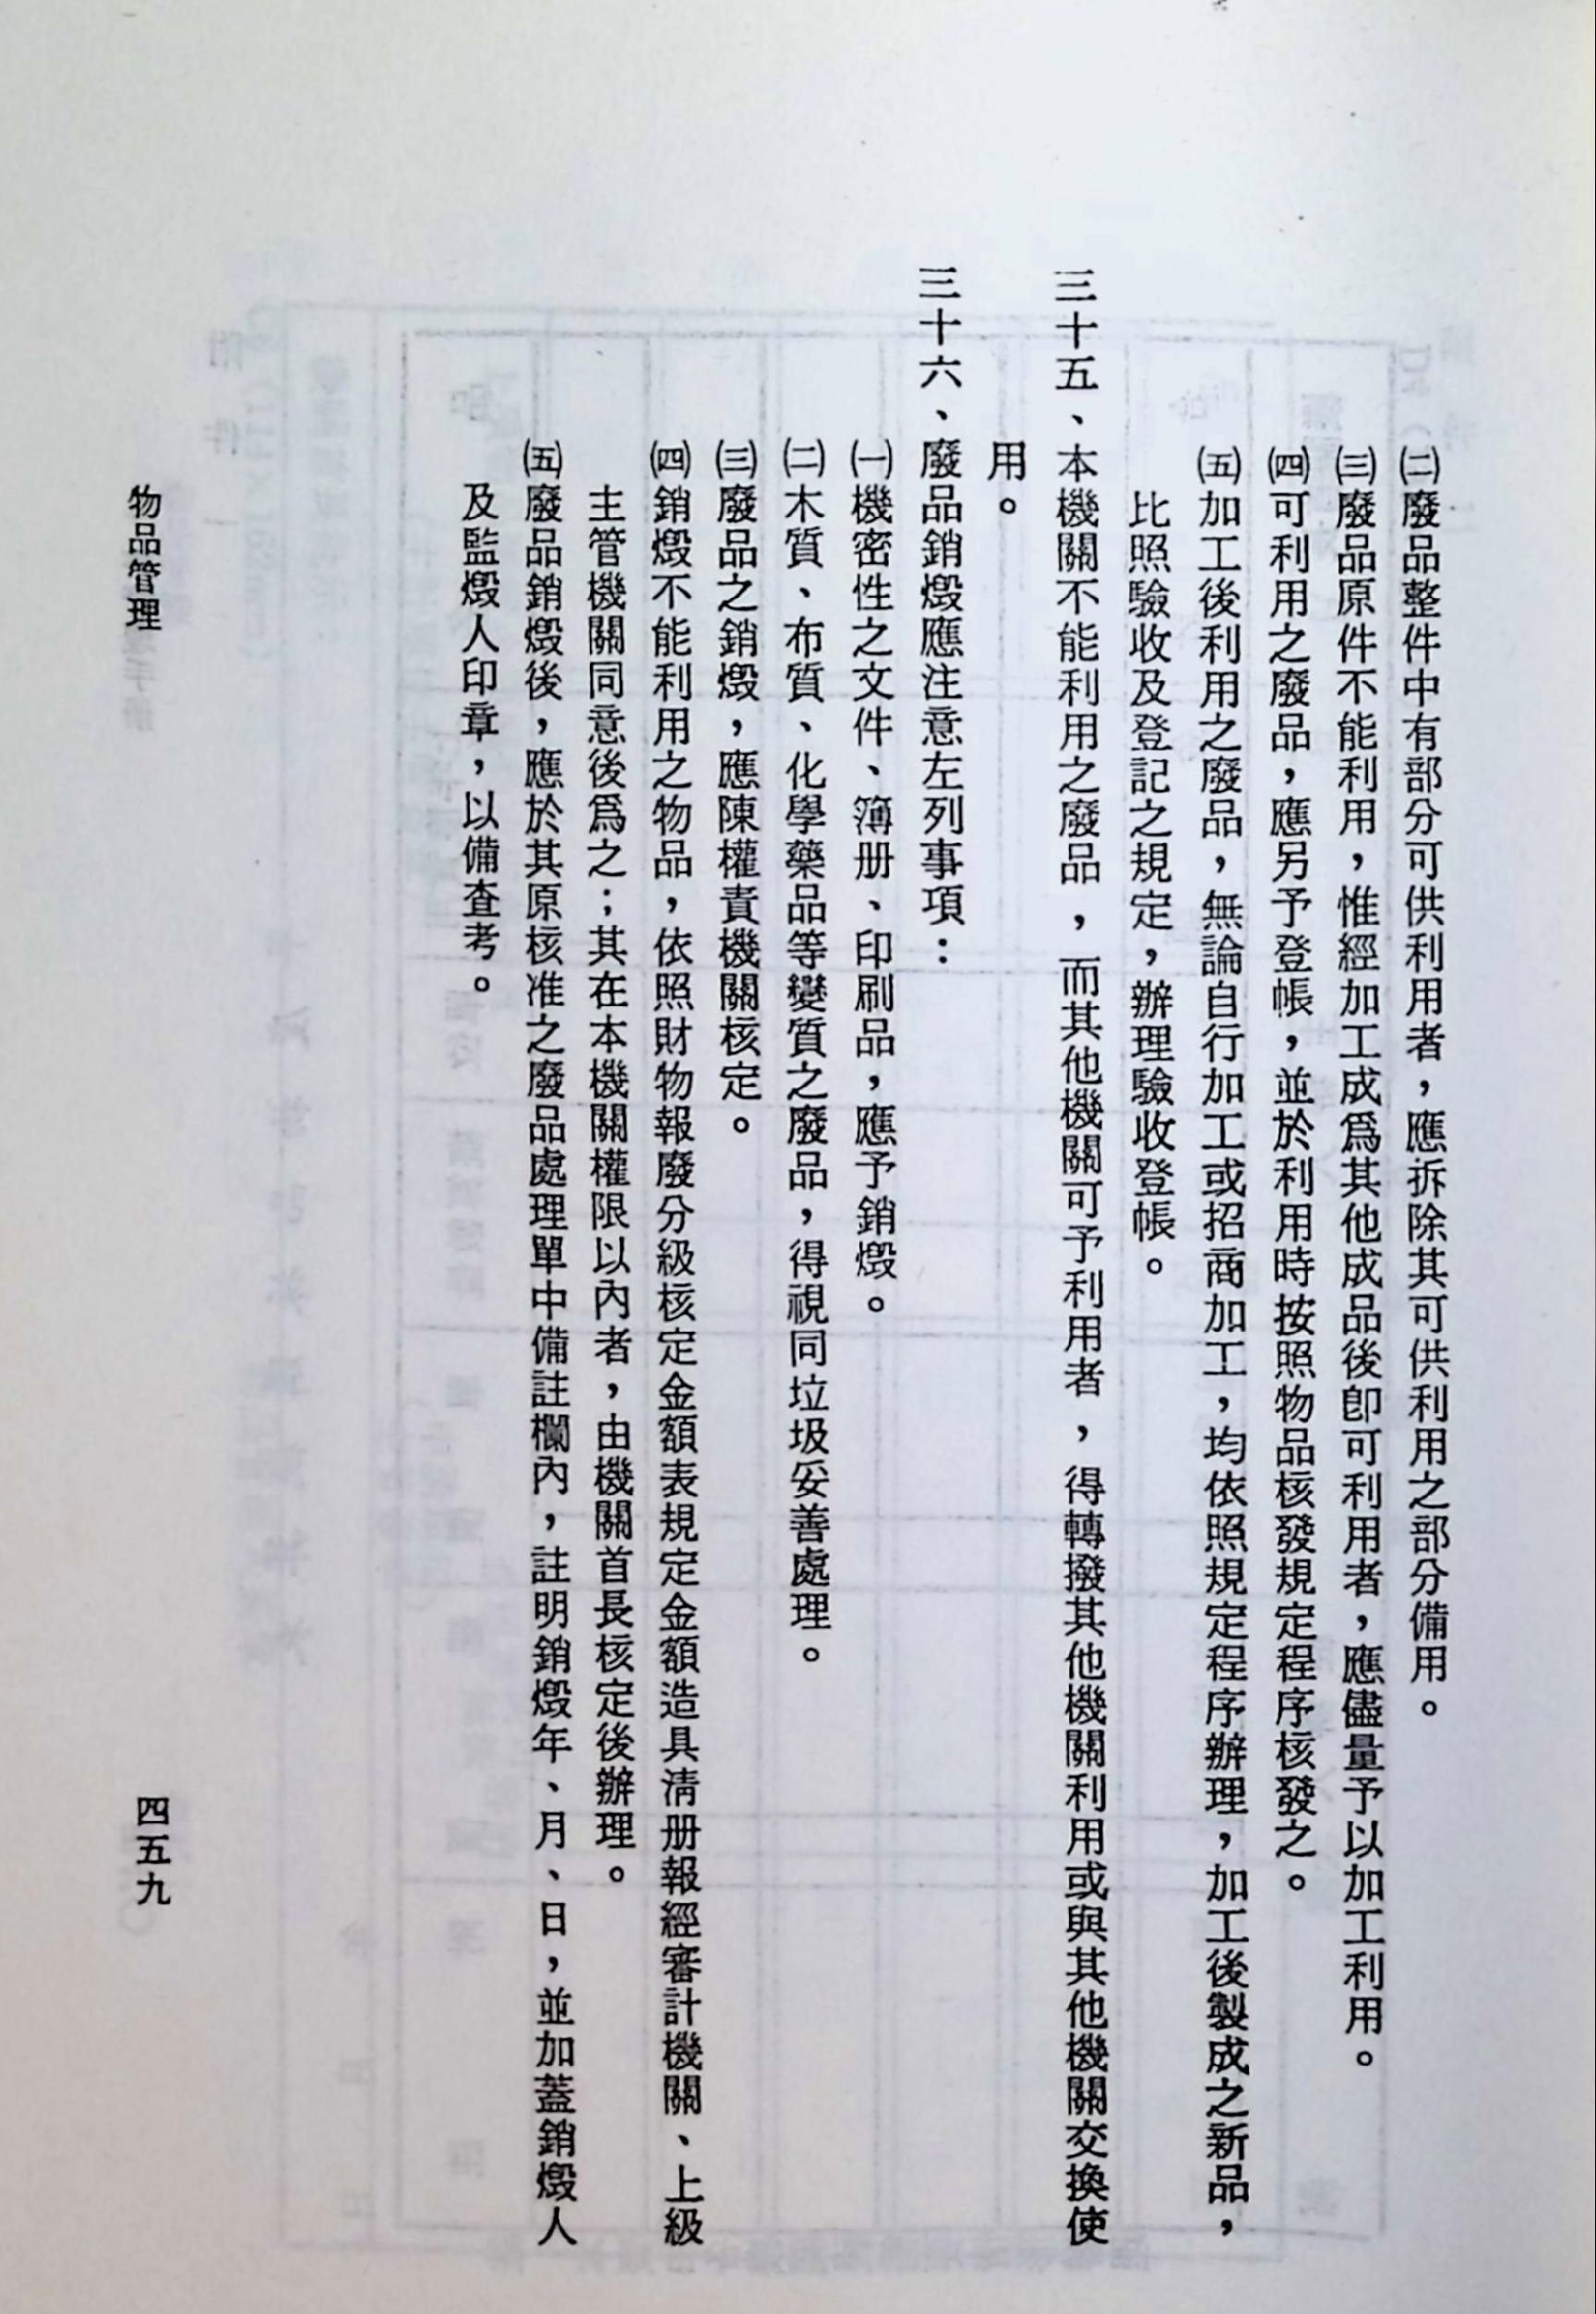 ㈡廢品整件中有部分可供利用者，應拆除其可供利用之部分備用。
㈢廢品原件不能利用，惟經加工成爲其他成品後卽可利用者，應儘量予以加工利用。
㈣可利用之廢品，應另予登帳，並於利用時按照物品核發規定程序核發之。
㈤加工後利用之廢品，無論自行加工或招商加工，均依照規定程序辦理，加工後製成之新品，
比照驗收及登記之規定，辦理驗收登帳。
三十五、本機關不能利用之廢品，而其他機關可予利用者，得轉撥其他機關利用或與其他機關交換使
用。
三十六、廢品銷燬應注意左列事項：
㈠機密性之文件、簿册、印刷品，應予銷燬。
㈡木質、布質、化學藥品等變質之廢品，得視同垃圾妥善處理。
㈢廢品之銷燬，應陳權責機關核定。
㈣銷燬不能利用之物品，依照財物報廢分級核定金額表規定金額造具清册報經審計機關、上級
主管機關同意後爲之；其在本機關權限以內者，由機關首長核定後辦理。
㈤廢品銷燬後，應於其原核准之廢品處理單中備註欄內，註明銷燬年、月、日，並加蓋銷燬人
及監燬人印章，以備查考。
物品管理
四五九